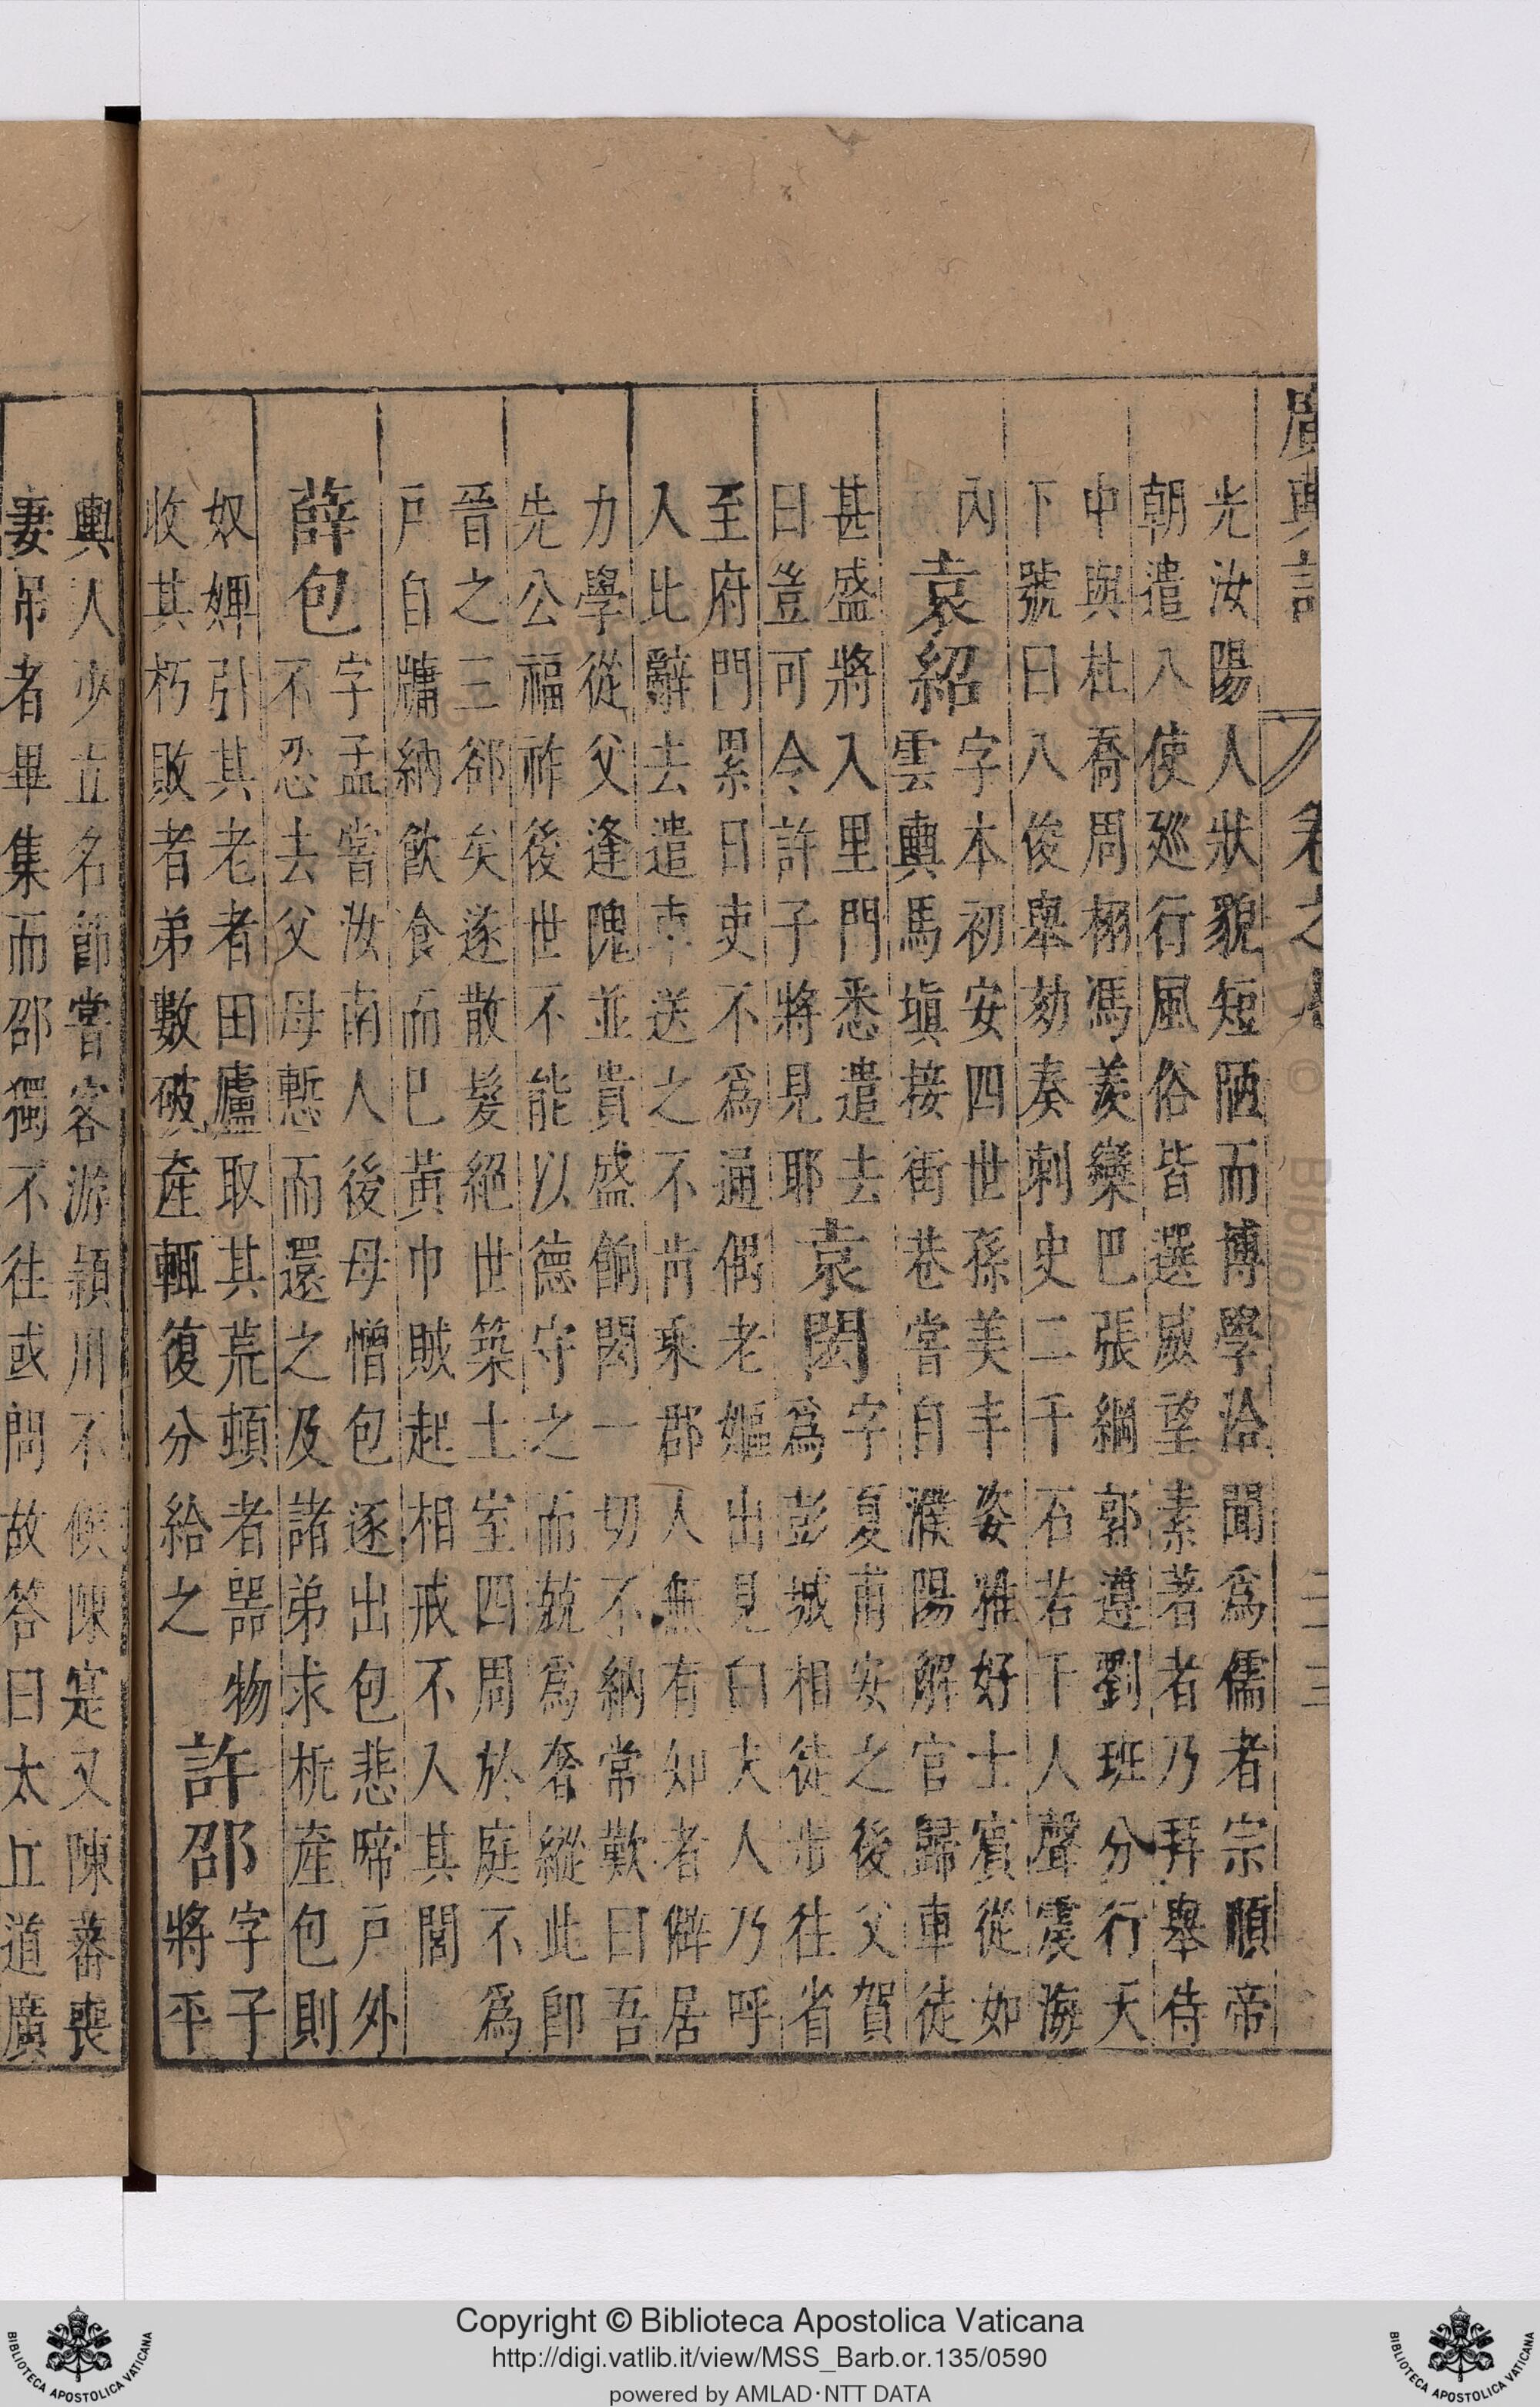 廣輿記 卷之八 二三
光汝陽人狀貌短陋而博學洽聞爲儒者宗順帝
朝遣八使廵行風俗皆選威望素著者乃拜舉侍
中與杜喬周栩馮羨欒巴張綱郭遵劉班分行天
下號曰八俊舉劾奏刺史二千石若干人聲震海
內
袁紹
字本初安四世孫美丰姿雅好士賓從如
雲輿馬塡接街巷嘗自濮陽解官歸車徒
甚盛將入里門悉遣去
曰豈可令許子將見耶
袁閎
字夏甫安之後父賀
爲彭城相徒步往省
至府門累日吏不爲通偶老嫗出見白夫人乃呼
入比辭去遣車送之不肯乘郡人無有知者僻居
力學從父逢隗並貴盛餉閎一切不納常歎曰吾
先公福祚後世不能以德守之而兢爲奢縱此卽
晉之三郤矣遂散髮絕世築土室四周於庭不爲
戶自牖納飲食而巳黃巾賊起相戒不入其閭
薛包
字孟嘗汝南人後母憎包逐出包悲啼戶外
不忍去父母慙而還之及諸弟求析產包則
奴婢引其老者田廬取其荒頓者噐物
收其朽敗者弟數破產輒復分給之
許邵
字子
將平
輿人少立名節嘗客游潁川不候陳寔又陳蕃喪
妻吊者畢集而邵獨不往或問故答曰太丘道廣
Copyright © Biblioteca Apostolica Vaticana
http://digi.vatlib.it/view/MSS_Barb.or.135/0590
powered by AMLAD·NTT DATA
BIBLIOTECA APOSTOLICA VATICANA
BIBLIOTECA APOSTOLICA VATICANA